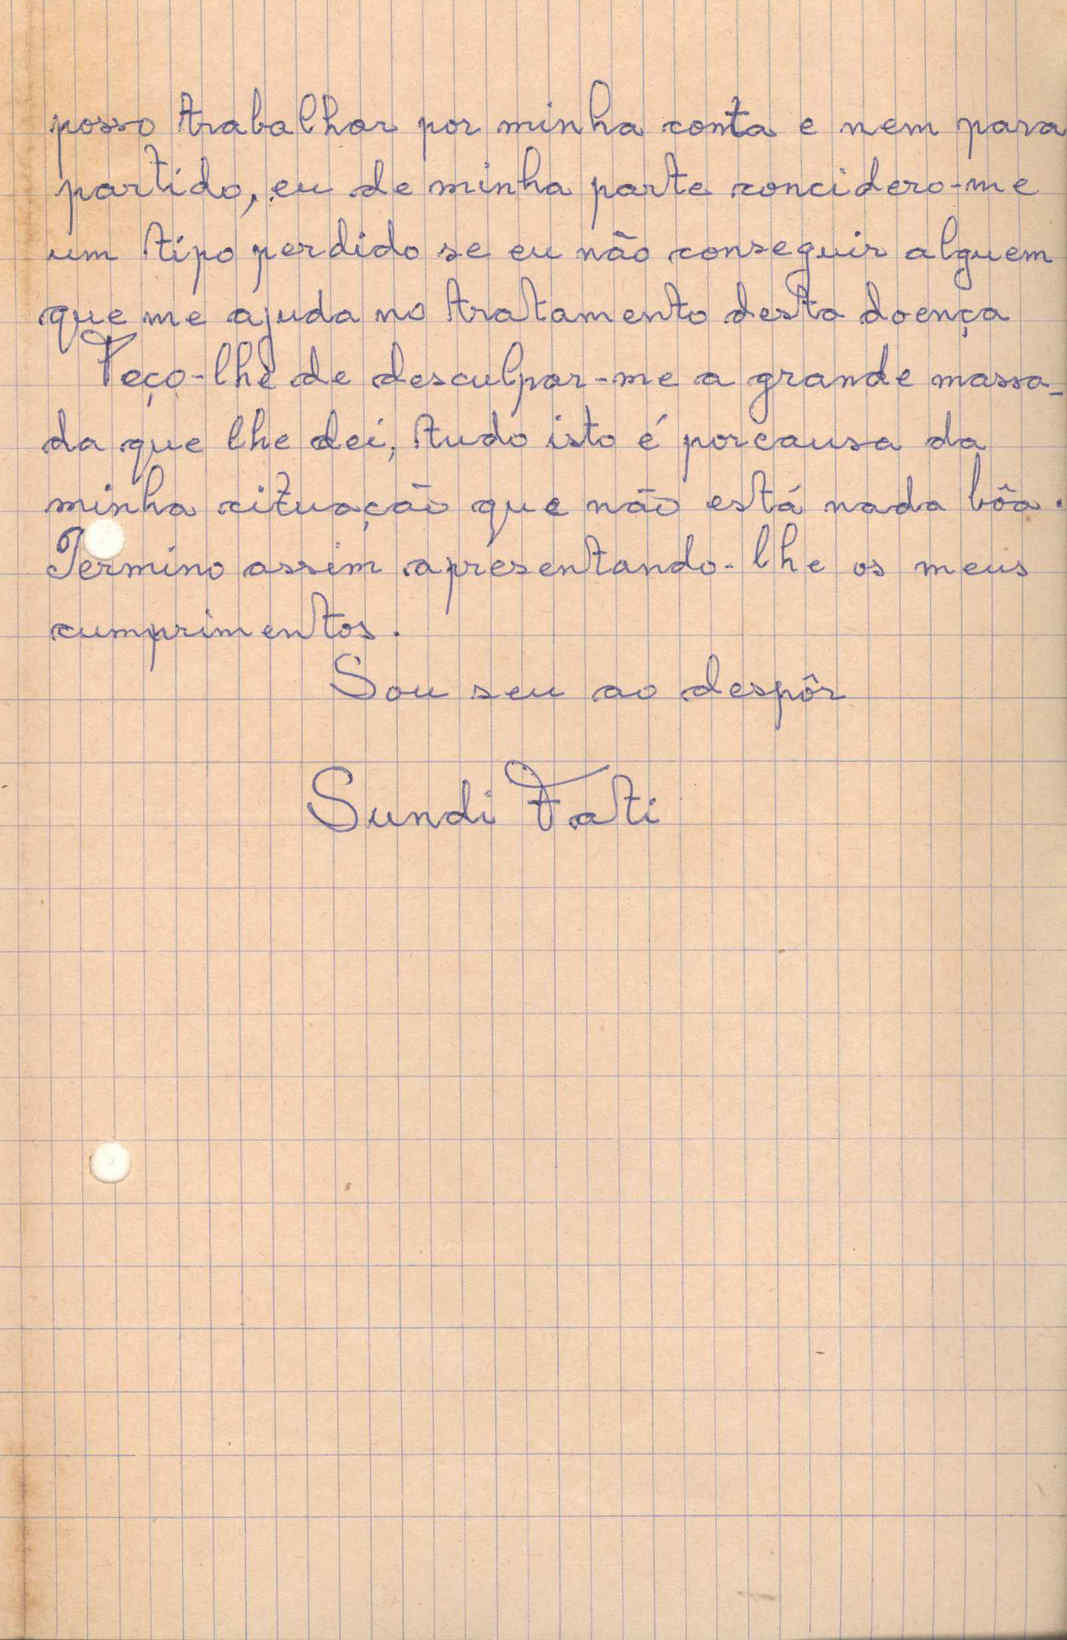 posso trabalhar por minha conta e nem para
partido, eu de minha parte concidero-me
um tipo perdido se eu não conseguir alguem
que me ajuda no tratamento desta doença
Peço-lhe de desculpar-me a grande massa-
da que lhe dei, tudo isto é porcausa da
minha cituação que não está nada bôa.
Termino assim apresentando-lhe os meus
cumprimentos.
Sou seu ao despôr
Sundi Fati